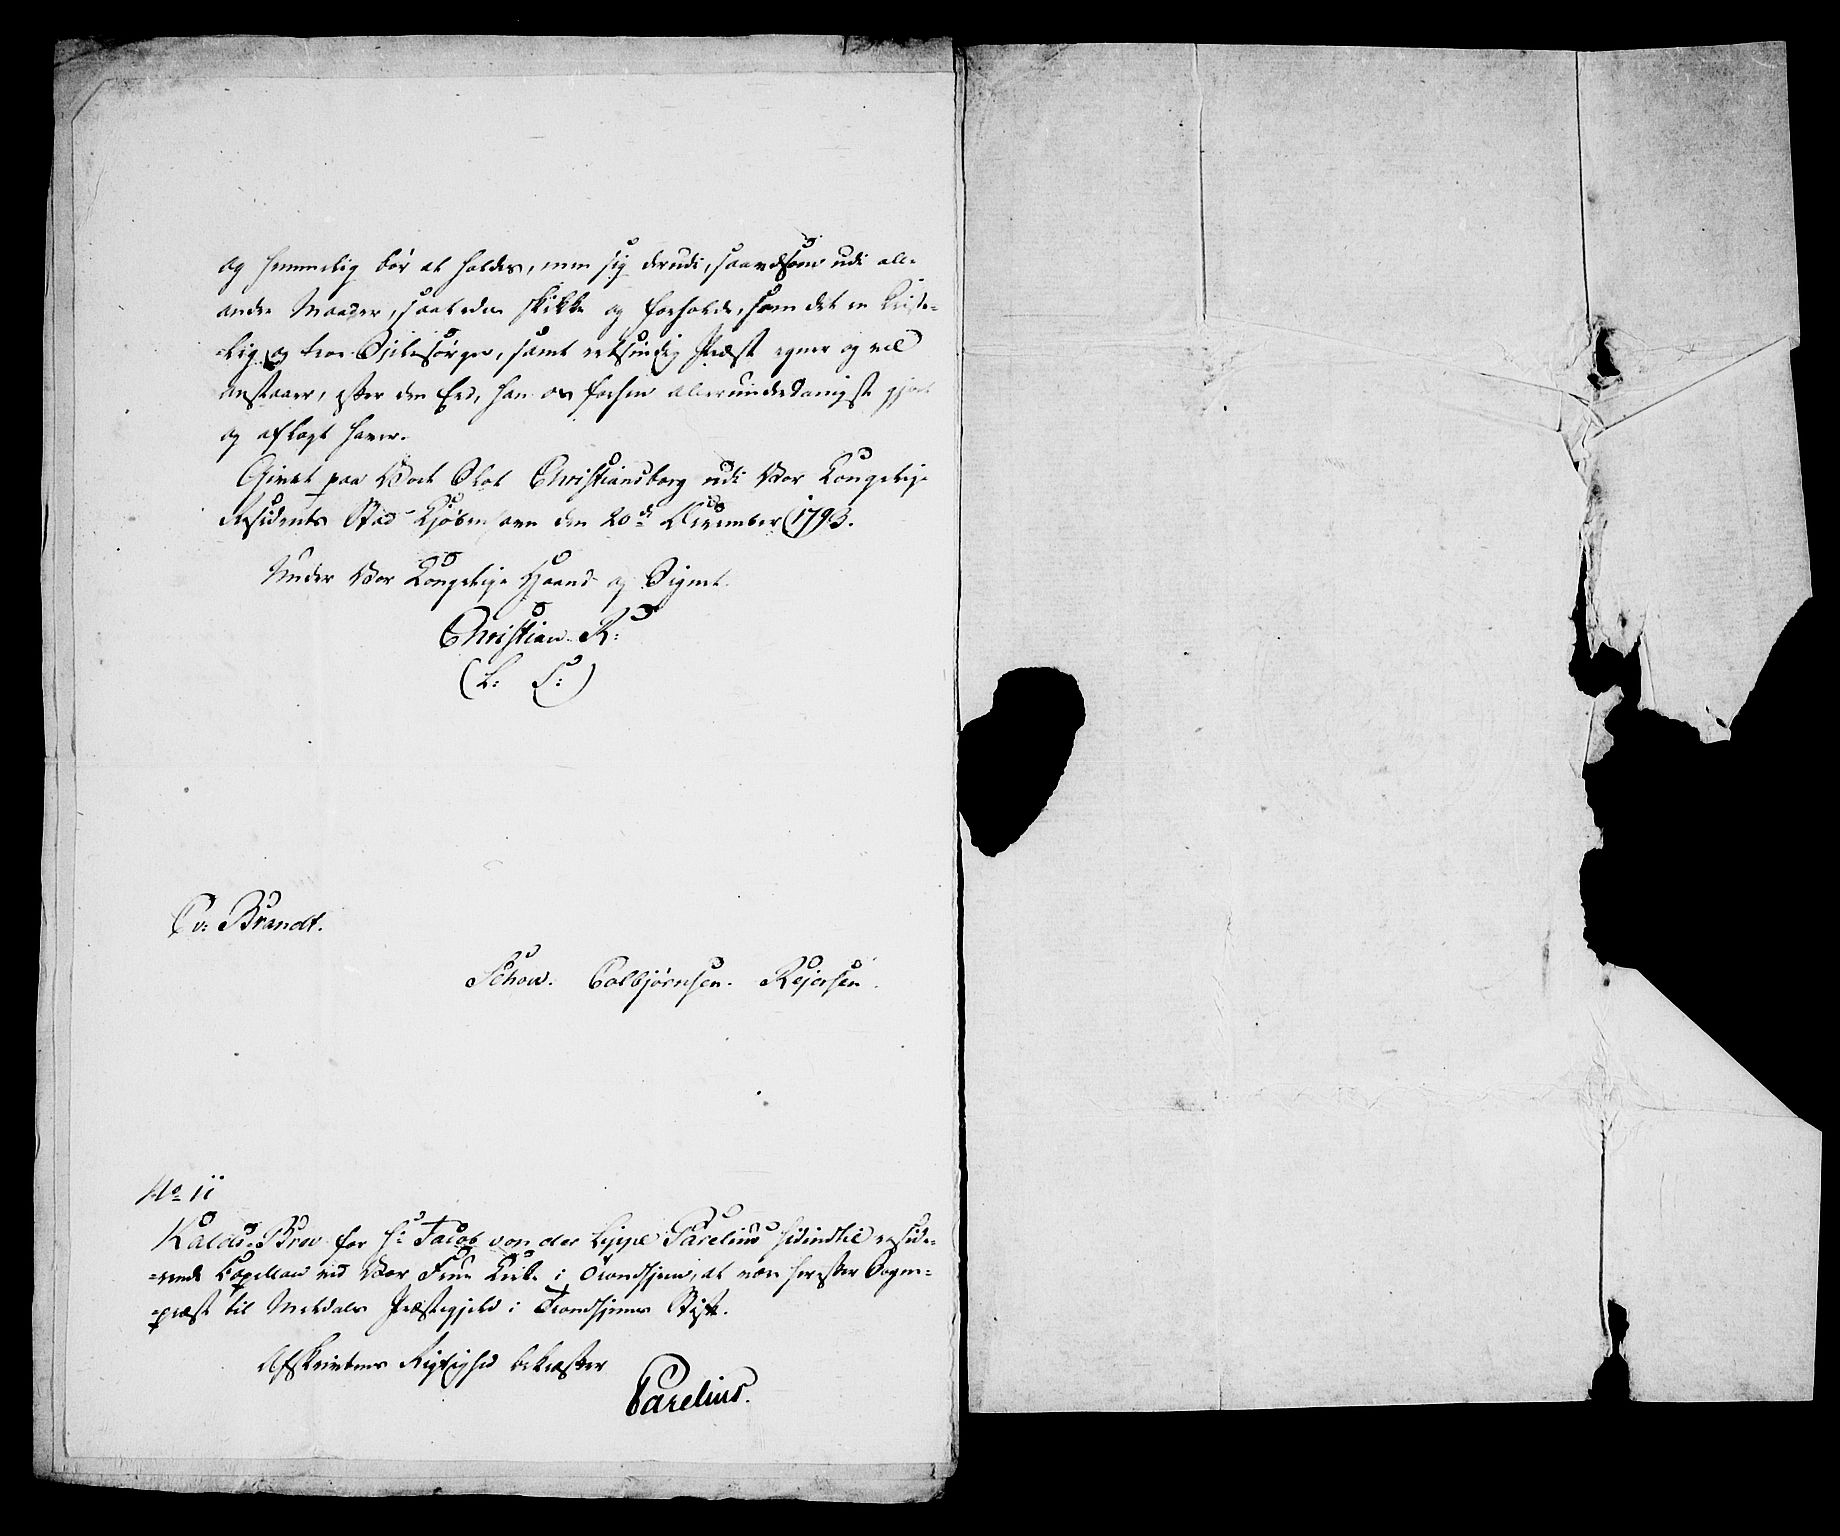 og hemmelig bör at holdes, men sig derudi, saavelsom udi alle
andre Maader, saaledes skikke og forholde, som det en Christe-
-lig og troe Sjælesörger, samt retsindig Præst egner og vel
anstaaer, efter den Eed, han os forhen allerunderdanigst gjort
og aflagt haver.
Givet paa Vort Slot Christiansborg udi Vor Kongelige
Residents Stad Kjöbenhavn den 20de December 1793.
Under Vor Kongelige Haand og Signet.
Christian R:
(L: S:)
Cv: Brandt.
Schow. Colbjørnsen. Rejersen.
No 11
Kalds-Brev for Hr Jacob von der Lippe Parelius hidindtil reside-
-rende Capellan ved Vor Frue Kirke i Trondhjem, at være herefter Sogne-
-præst til Meldals Præstegjeld i Trondhjems Stift.
Afskriftens Rigtighed bekræfter
Parelius.